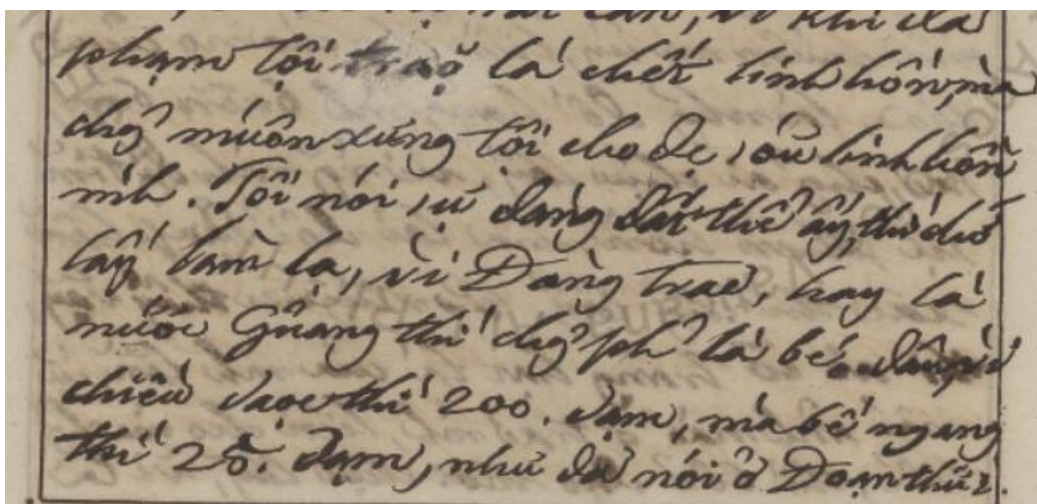 vì khi đã
phạm tội traọ̆ là chết linh hồn, mà
chg̉ muốn xưng tội cho đc̣ ſóũ linh hồn
mình. Tôi nói ſự đàng đất thế ấy, thì chớ
lấy làm lạ, vì Đàng traõ, hay là
nước Qủang thì chg̉ ph̉ là bé đâu, vì
chiều daoc thì 200. dặm, mà bề ngang
thì 25. dặm, như đã nói ở Đoạn thứ 2.